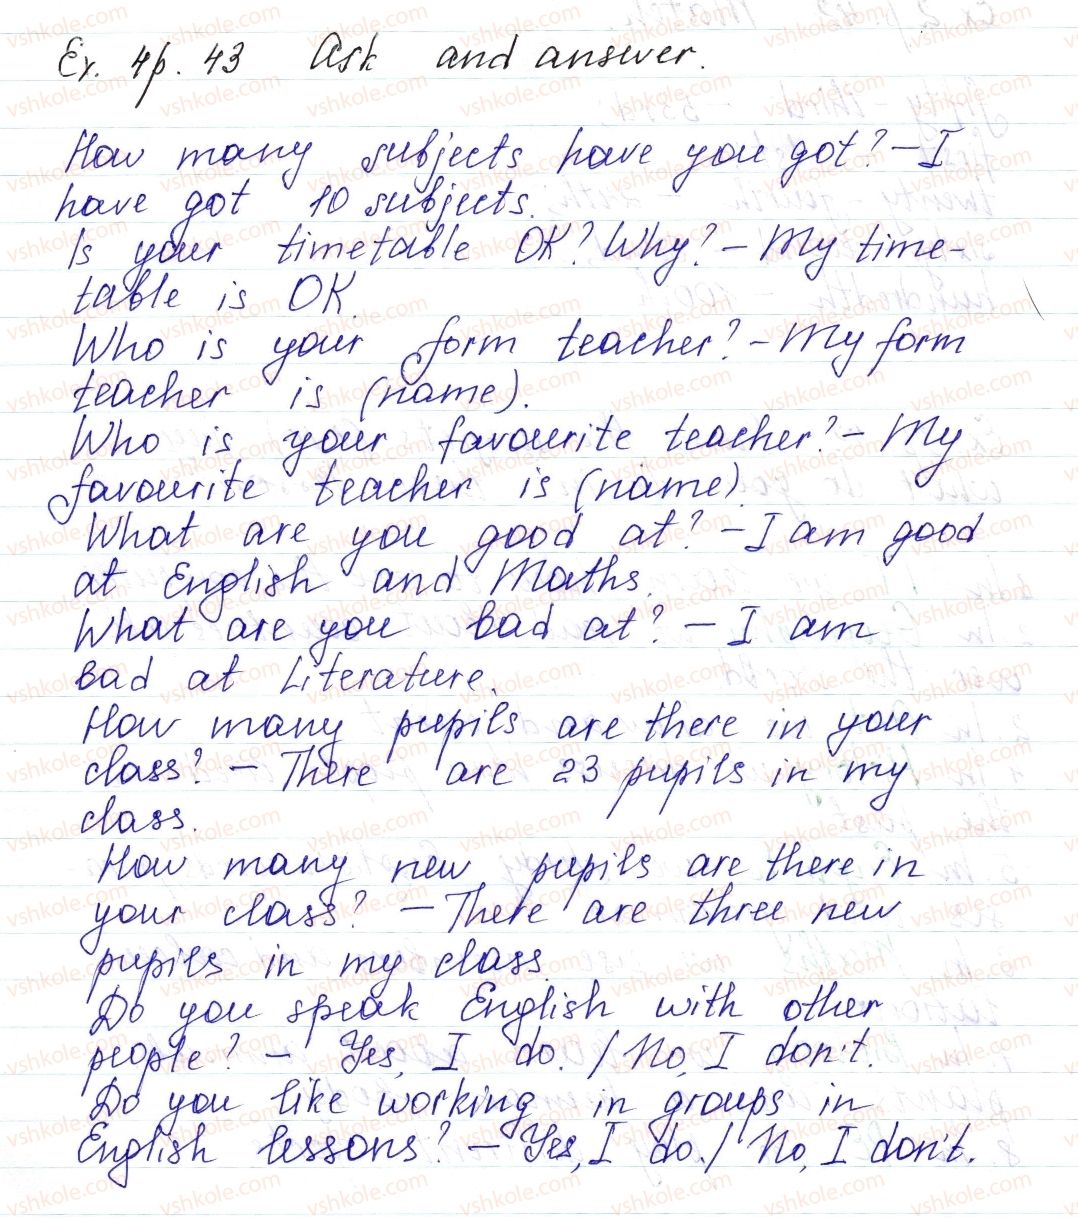 Ex. 4p. 43 Ask and answer.
How many subjects have you got? – I
have got 10 subjects.
Is your timetable OK? Why? – My time-
table is OK.
Who is your form teacher? – My form
teacher is (name).
Who is your favourite teacher? – My
favourite teacher is (name).
What are you good at? – I am good
at English and Maths.
What are you bad at? – I am
bad at Literature.
How many pupils are there in your
class? – There are 23 pupils in my
class.
How many new pupils are there in
your class? – There are three new
pupils in my class.
Do you speak English with other
people? – Yes, I do. / No, I don't.
Do you like working in groups in
English lessons? – Yes, I do. / No, I don't.
vshkole.com